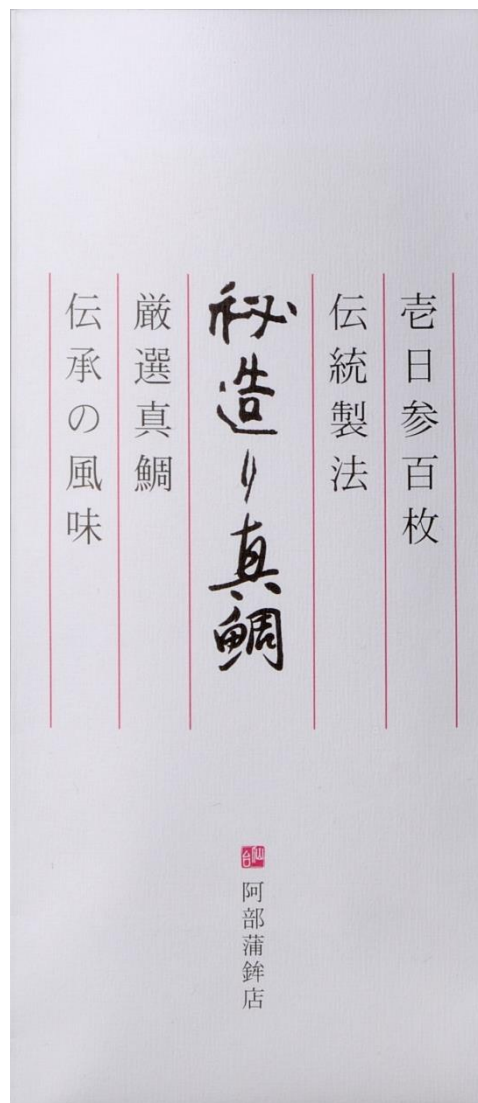 壱日参百枚
伝統製法
秘造り真鯛
厳選真鯛
伝承の風味
仙台
阿部蒲鉾店